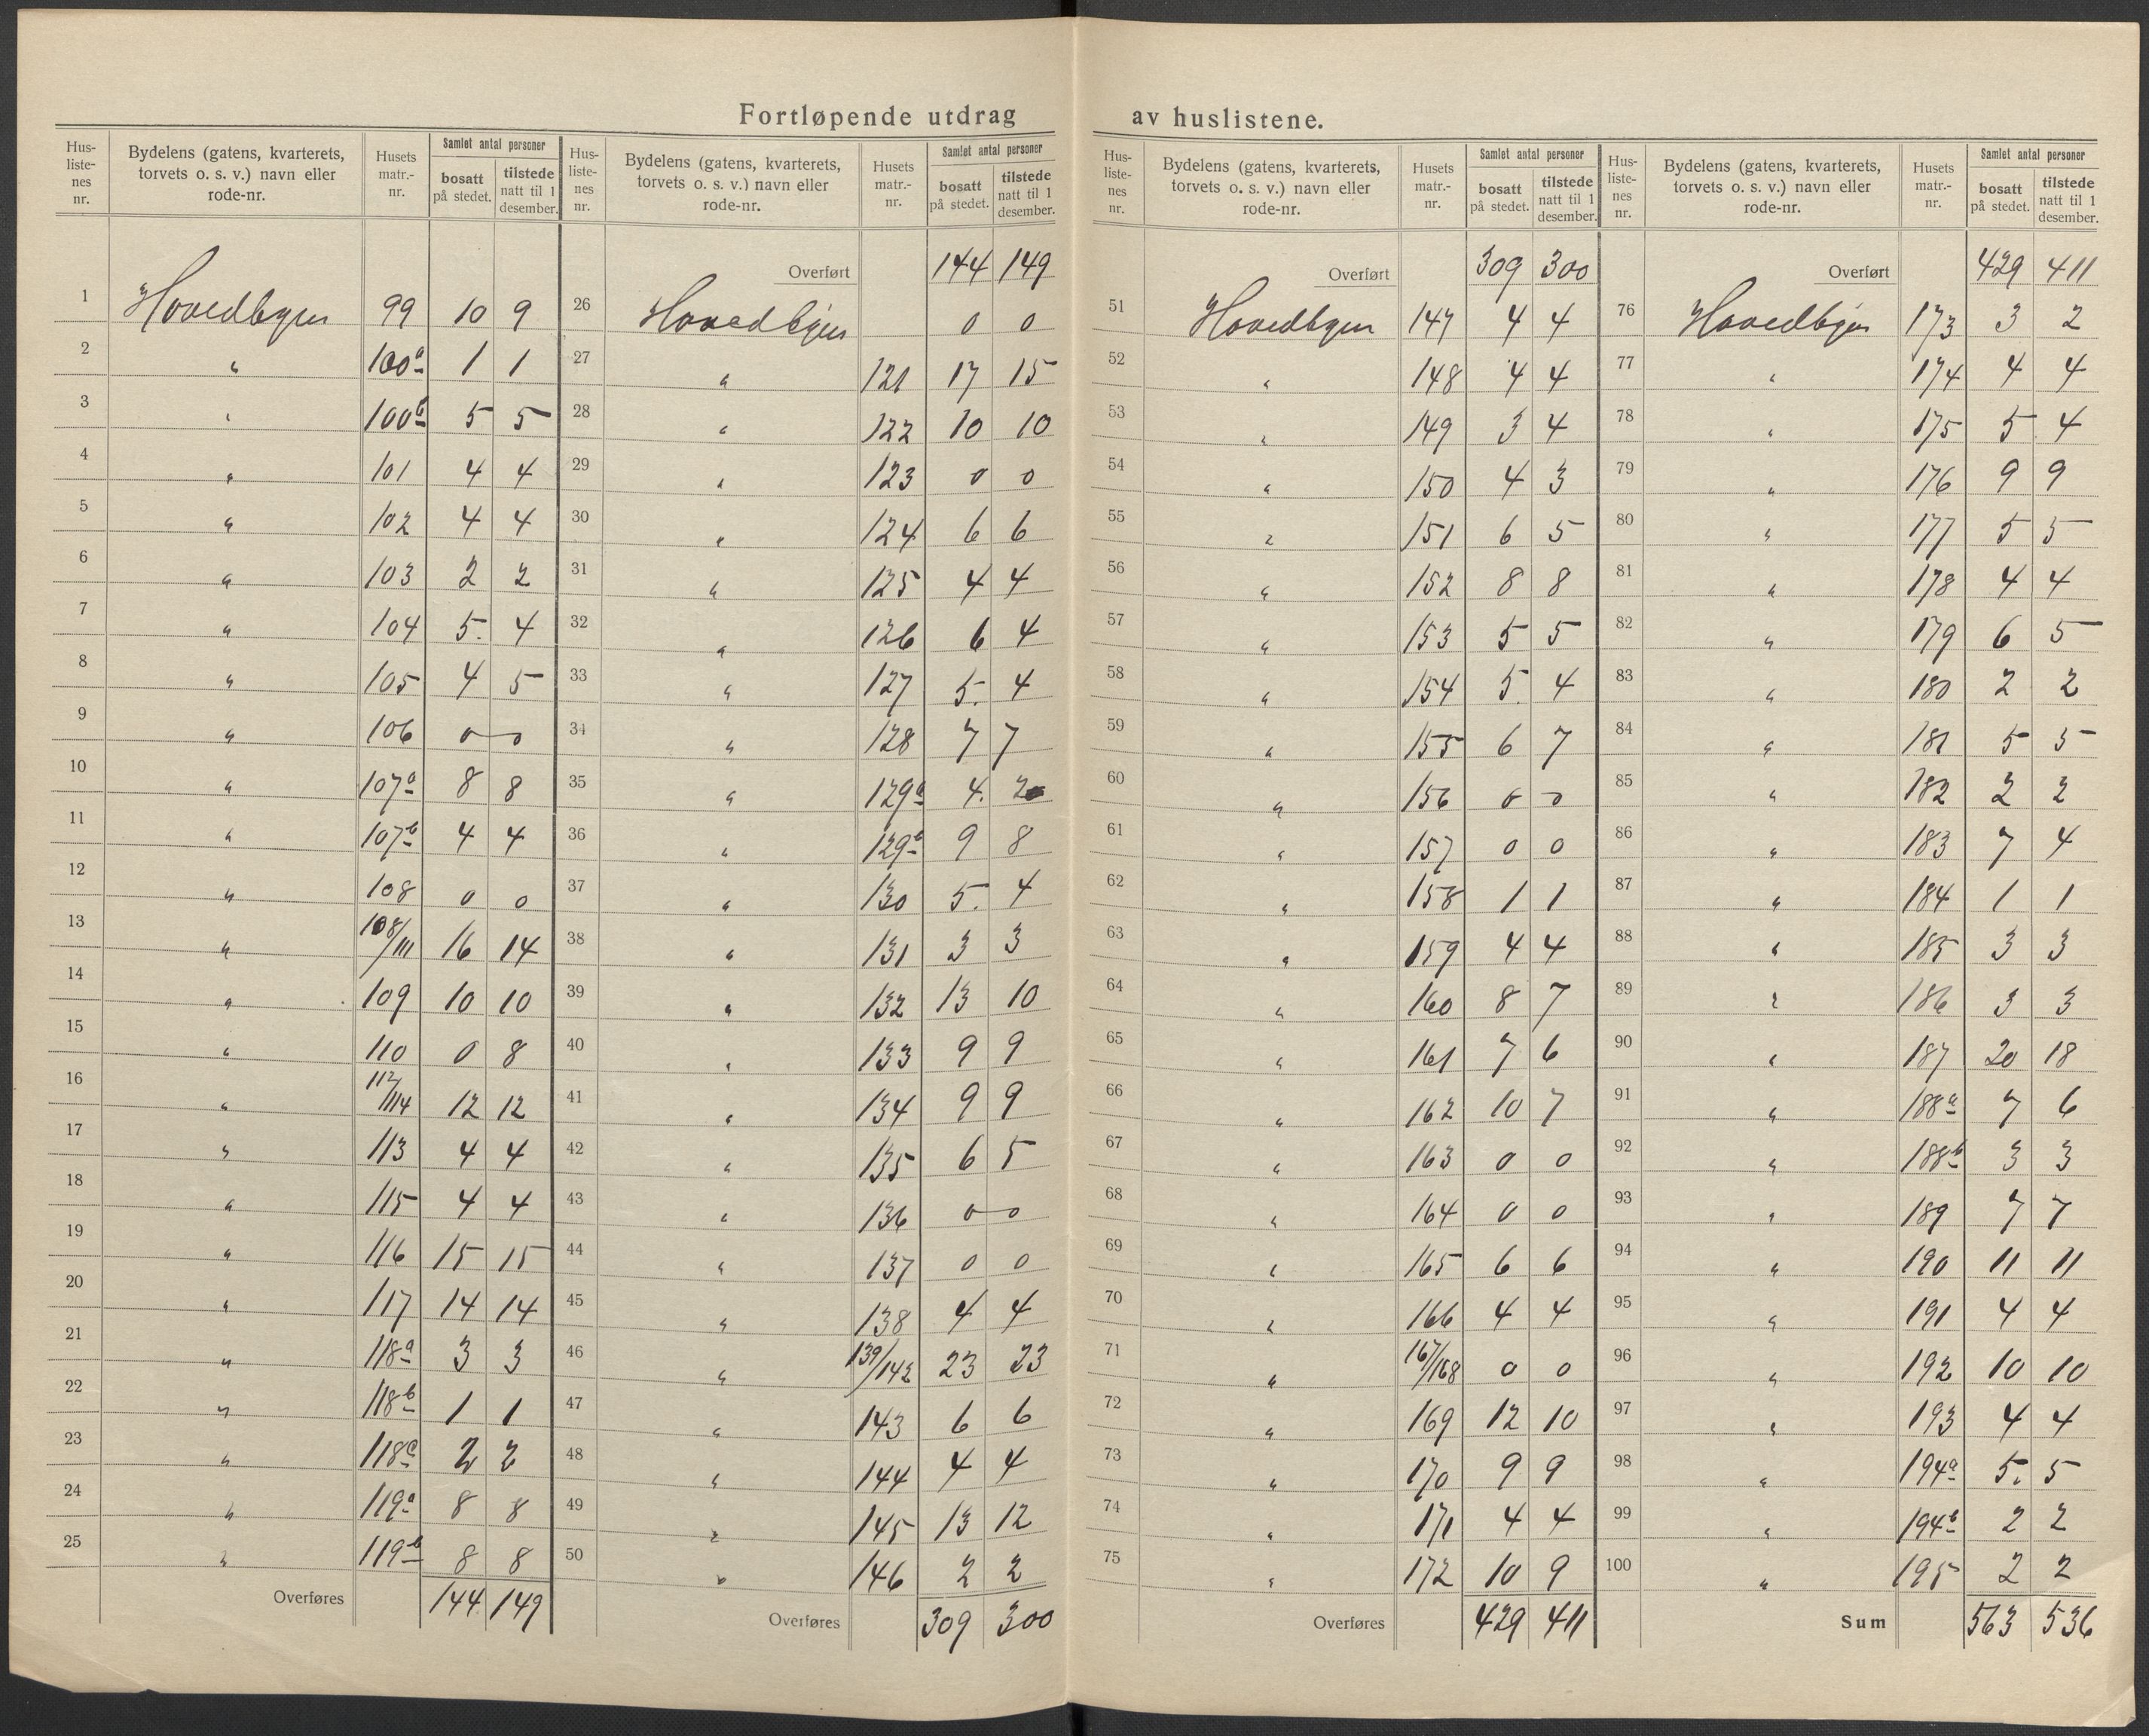 Fortløpende utdrag av huslistene.
Hus-listenes nr. | Bydelens (gatens, kvarterets, torvets o. s. v.) navn eller rode-nr. | Husets matr.-nr. | Samlet antal personer bosatt på stedet. | tilstede natt til 1 desember.
1 Hovedbyen 99 10 9
2 " 100a 1 1
3 " 100b 5 5
4 " 101 4 4
5 " 102 4 4
6 " 103 2 2
7 " 104 5. 4
8 " 105 4 5
9 " 106 0 0
10 " 107a 8 8
11 " 107b 4 4
12 " 108 0 0
13 " 108/111 16 14
14 " 109 10 10
15 " 110 0 8
16 " 112/114 12 12
17 " 113 4 4
18 " 115 4 4
19 " 116 15 15
20 " 117 14 14
21 " 118a 3 3
22 " 118b 1 1
23 " 118c 2 2
24 " 119a 8 8
25 " 119b 8 8
Overføres 144 149
Hus-listenes nr. | Bydelens (gatens, kvarterets, torvets o. s. v.) navn eller rode-nr. | Husets matr.-nr. | Samlet antal personer bosatt på stedet. | tilstede natt til 1 desember.
Overført 144 149
26 Hovedbyen 0 0
27 " 121 17 15
28 " 122 10 10
29 " 123 0 0
30 " 124 6 6
31 " 125 4 4
32 " 126 6 4
33 " 127 5. 4
34 " 128 7 7
35 " 129a 4. 2
36 " 129b 9 8
37 " 130 5. 4
38 " 131 3 3
39 " 132 13 10
40 " 133 9 9
41 " 134 9 9
42 " 135 6 5
43 " 136 0 0
44 " 137 0 0
45 " 138 4 4
46 " 139/142 23 23
47 " 143 6 6
48 " 144 4 4
49 " 145 13 12
50 " 146 2 2
Overføres 309 300
Hus-listenes nr. | Bydelens (gatens, kvarterets, torvets o. s. v.) navn eller rode-nr. | Husets matr.-nr. | Samlet antal personer bosatt på stedet. | tilstede natt til 1 desember.
Overført 309 300
51 Hovedbyen 147 4 4
52 " 148 4 4
53 " 149 3 4
54 " 150 4 3
55 " 151 6 5
56 " 152 8 8
57 " 153 5 5
58 " 154 5. 4
59 " 155 6 7
60 " 156 0 0
61 " 157 0 0
62 " 158 1 1
63 " 159 4 4
64 " 160 8 7
65 " 161 7 6
66 " 162 10 7
67 " 163 0 0
68 " 164 0 0
69 " 165 6 6
70 " 166 4 4
71 " 167/168 0 0
72 " 169 12 10
73 " 170 9 9
74 " 171 4 4
75 " 172 10 9
Overføres 429 411
Hus-listenes nr. | Bydelens (gatens, kvarterets, torvets o. s. v.) navn eller rode-nr. | Husets matr.-nr. | Samlet antal personer bosatt på stedet. | tilstede natt til 1 desember.
Overført 429 411
76 Hovedbyen 173 3 2
77 " 174 4 4
78 " 175 5 4
79 " 176 9 9
80 " 177 5 5
81 " 178 4 4
82 " 179 6 5
83 " 180 2 2
84 " 181 5 5
85 " 182 2 2
86 " 183 7 4
87 " 184 1 1
88 " 185 3 3
89 " 186 3 3
90 " 187 20 18
91 " 188a 7 6
92 " 188b 3 3
93 " 189 7 7
94 " 190 11 11
95 " 191 4 4
96 " 192 10 10
97 " 193 4 4
98 " 194a 5. 5
99 " 194b 2 2
100 " 195 2 2
Sum 563 536